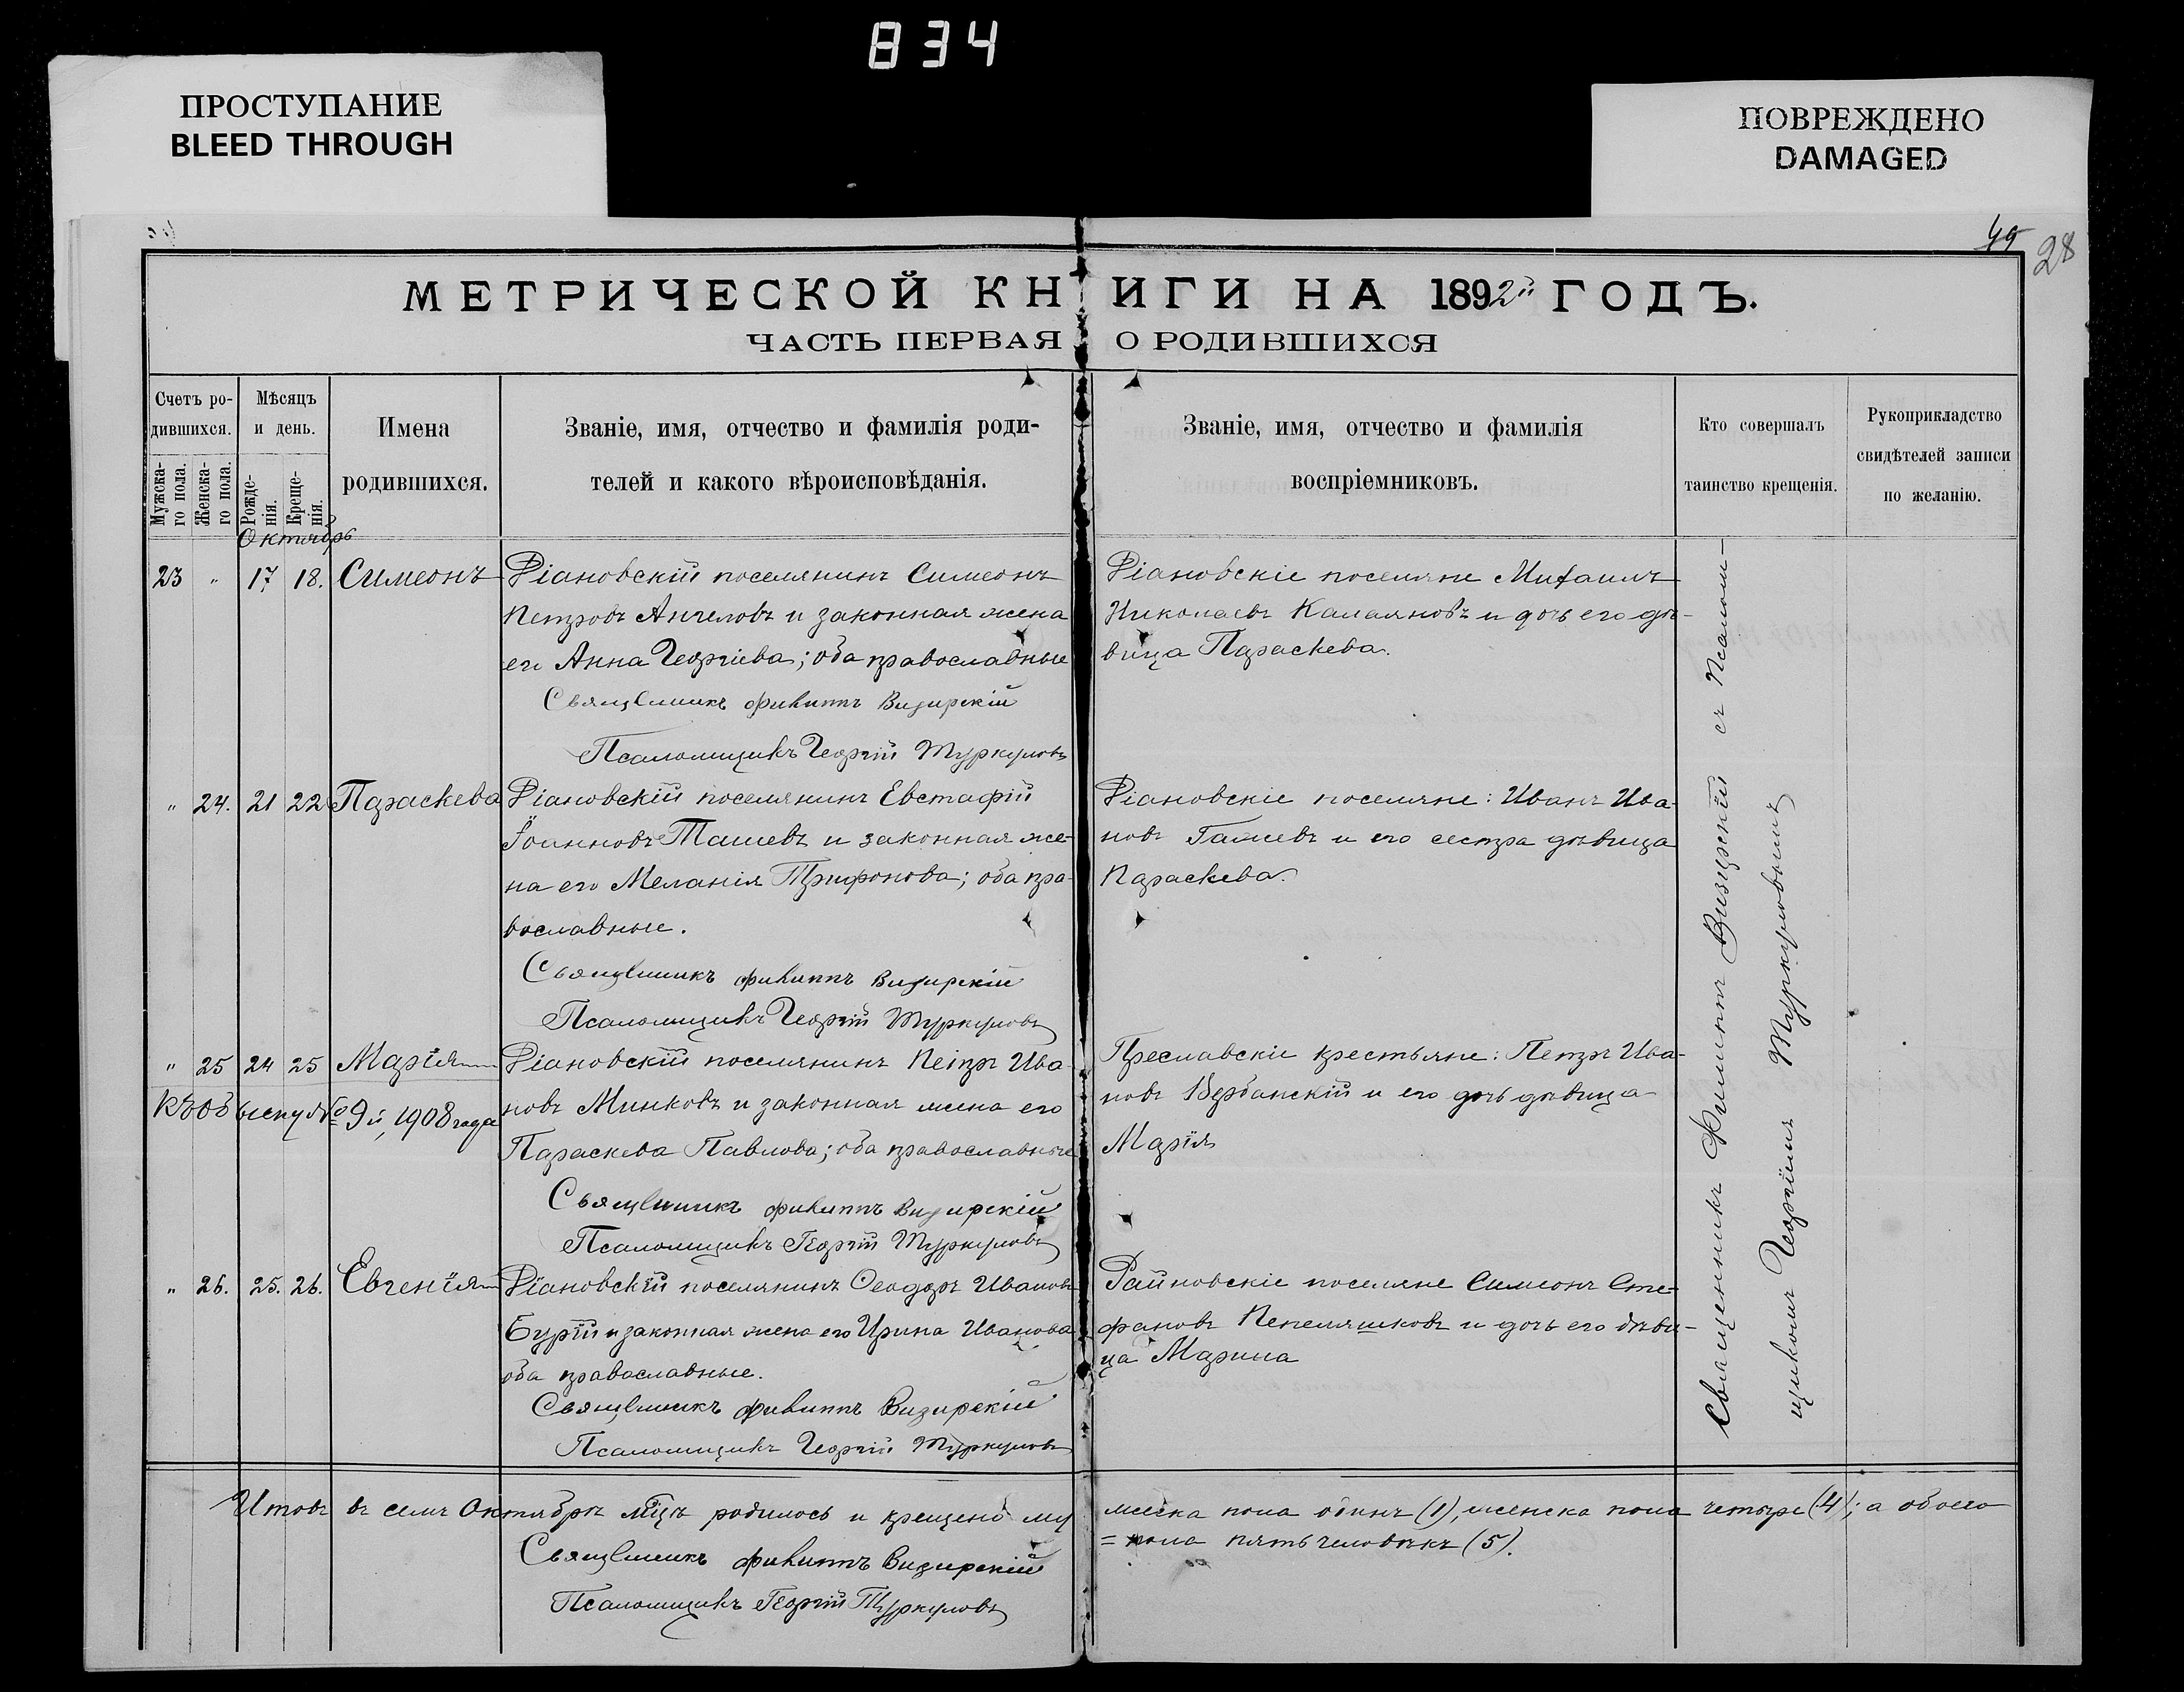 834
ПРОСТУПАНИЕ
BLEED THROUGH
ПОВРЕЖДЕНО
DAMAGED
49
28
МЕТРИЧЕСКОЙ КНИГИ НА 1892й ГОДЪ.
ЧАСТЬ ПЕРВАЯ О РОДИВШИХСЯ
Счетъ ро-
дившихся.
Мужска-
го пола.
Женска-
го пола.
Мѣсяцъ
и день.
Рожде-
нія.
Креще-
нія.
Имена
родившихся.
Званіе, имя, отчество и фамилія роди-
телей и какого вѣроисповѣданія.
Званіе, имя, отчество и фамилія
воспріемниковъ.
Кто совершалъ
таинство крещенія.
Рукоприкладство
свидѣтелей записи
по желанію.
Октябрь
23 " 17 18. Симеонъ
Ріановскій поселянинъ Симеонъ
Петровъ Ангеловъ и законная жена
его Анна Георгіева; оба православные
Священникъ Филиппъ Визирскій
Псаломщикъ Георгій Туркуловъ
Ріановскіе поселяне Михаилъ
Николаевъ Калаяновъ и дочь его дѣ-
вица Параскева.
" 24. 21 22 Параскева
Ріановскій поселянинъ Евстафій
Іоанновъ Ташевъ и законная же-
на его Меланія Трифонова; оба пра-
вославные.
Священникъ Филиппъ Визирскій
Псаломщикъ Георгій Туркуловъ
Ріановскіе поселяне: Иванъ Ива-
новъ и его сестра дѣвица
Параскева.
" 25 24 25 Марія
Къ 9й, 1908 года
Ріановскій поселянинъ Петръ Ива-
новъ Минковъ и законная жена его
Параскева Павлова; оба православные
Священникъ Филиппъ Визирскій
Псаломщикъ Георгій Туркуловъ
Преславскіе крестьяне: Петръ Ива-
новъ Вербанскій и его дочь дѣвица
Марія
" 26. 25. 26. Евгенія
Ріановскій поселянинъ Ѳеодоръ Ивановъ
Бургій и законная жена его Ирина Иванова
оба православные.
Священникъ Филиппъ Визирскій
Псаломщикъ Георгій Туркуловъ
Райновскіе поселяне Симеонъ Сте-
фановъ Пепеляшковъ и дочь его дѣви-
ца Марина
Священникъ Филиппъ Визирскій съ Псалом-
щикомъ Георгіемъ Туркуловымъ
Итого въ семъ Октябрѣ мцѣ родилось и крещено му
жеска пола одинъ (1), женска пола четыре (4); а обоего
= пола пять человѣкъ (5).
Священникъ Филиппъ Визирскій
Псаломщикъ Георгій Туркуловъ